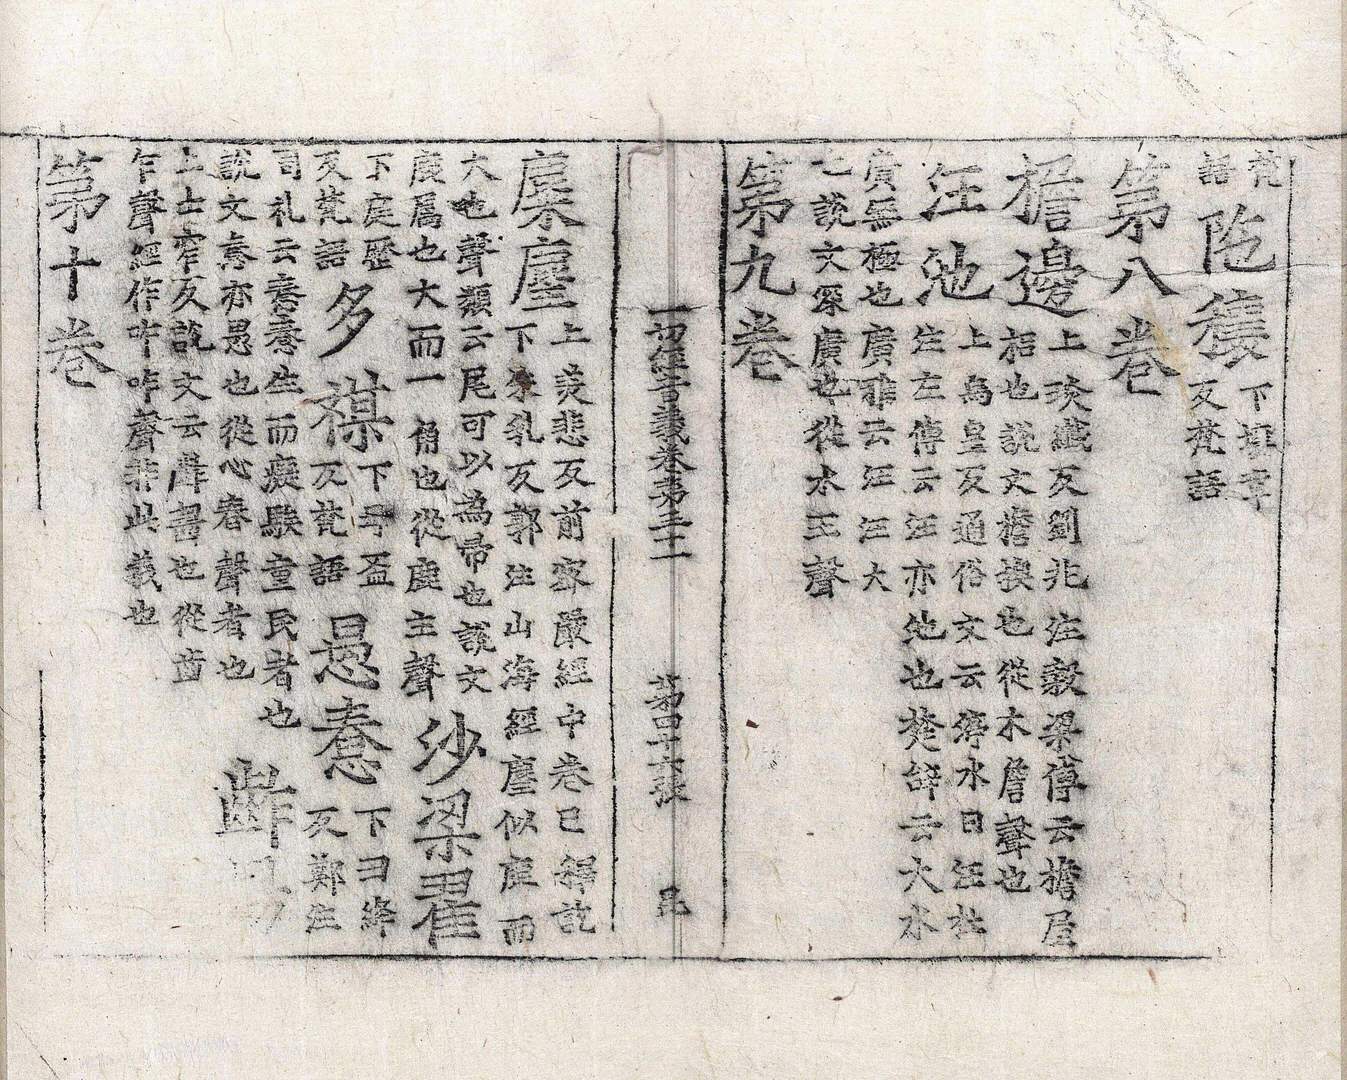 梵
語
陁穫
反梵語
第八卷
檐邊
上琰纖反劉兆注穀梁傳云檐屋
梠也說文檐㮰也從木詹聲也
汪池
上烏皇反通俗文云停水曰汪杜
注左傳云汪亦池也楚辞云大水
廣無極也廣雅云汪汪大
也說文深廣也從水王聲
第九卷
一切經音義卷第三十二 第四十六張 昆
麋麈
上美悲反前密嚴經中卷已釋訖
下朱乳反郭注山海經麈似鹿而
大也聲類云尾可以為帚也說文
鹿屬也大而一角也從鹿主聲
沙梁翟
下庭歷
反梵語
多禖
下母盃
反梵語
愚惷
下丑絳
反鄭注
司礼云惷惷生而癡騃童民者也
說文惷亦愚也從心舂聲者也
齚
上士窄反說文云齚齧也從齒
乍聲經作咋咋聲非此義也
第十卷